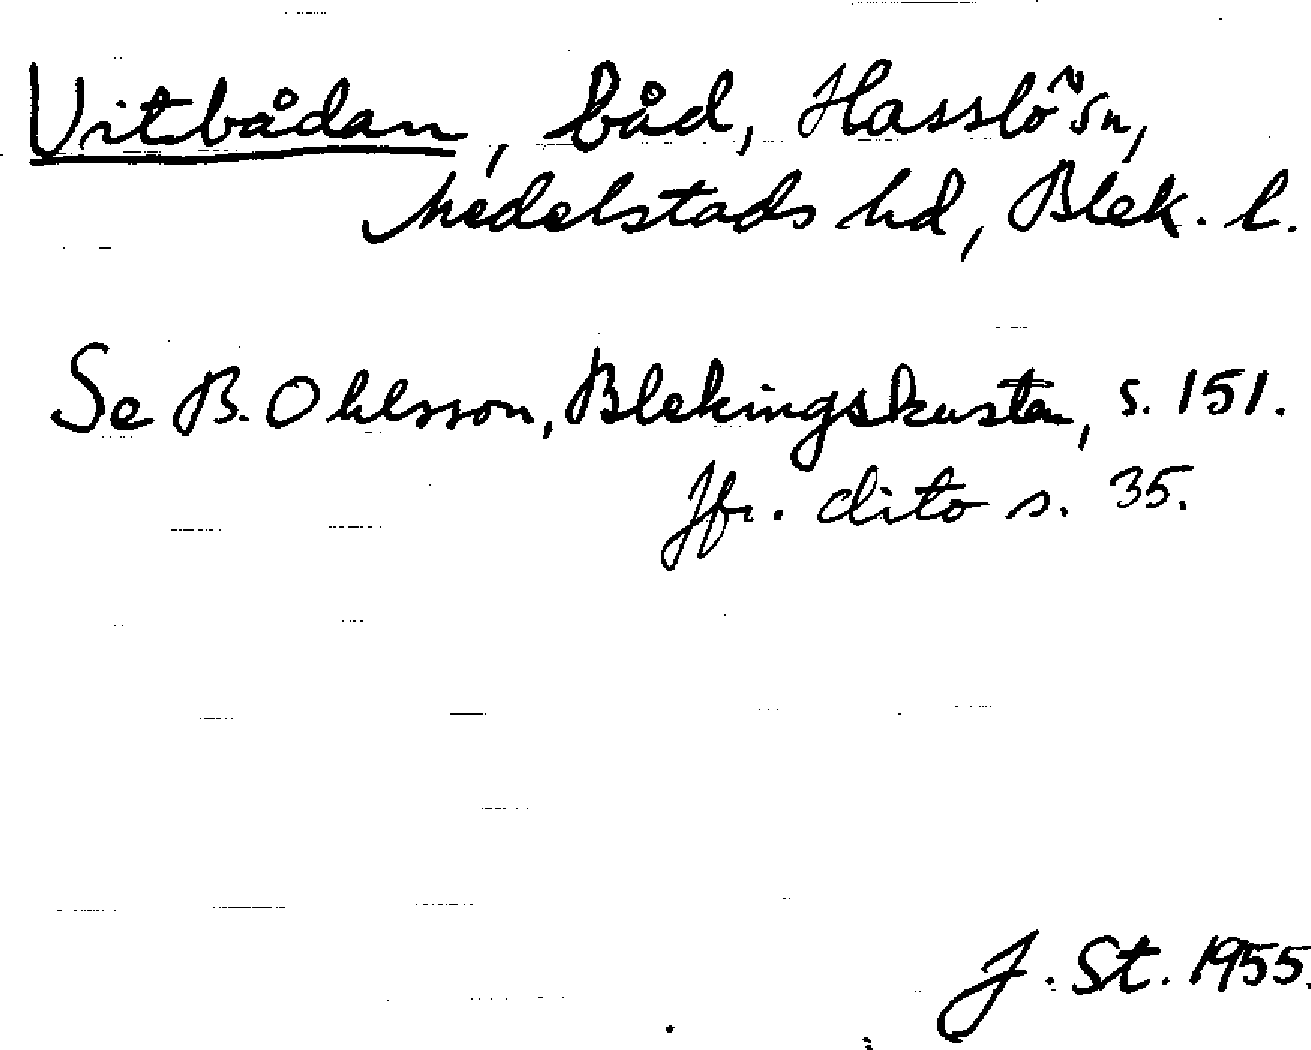 Vitbådan, båd, Hasslö sn,
Medelstads hd, Blek. l.
Se B. Ohlsson, Blekingskusten, s. 151.
Jfr. dito s. 35.
J. St. 1955.